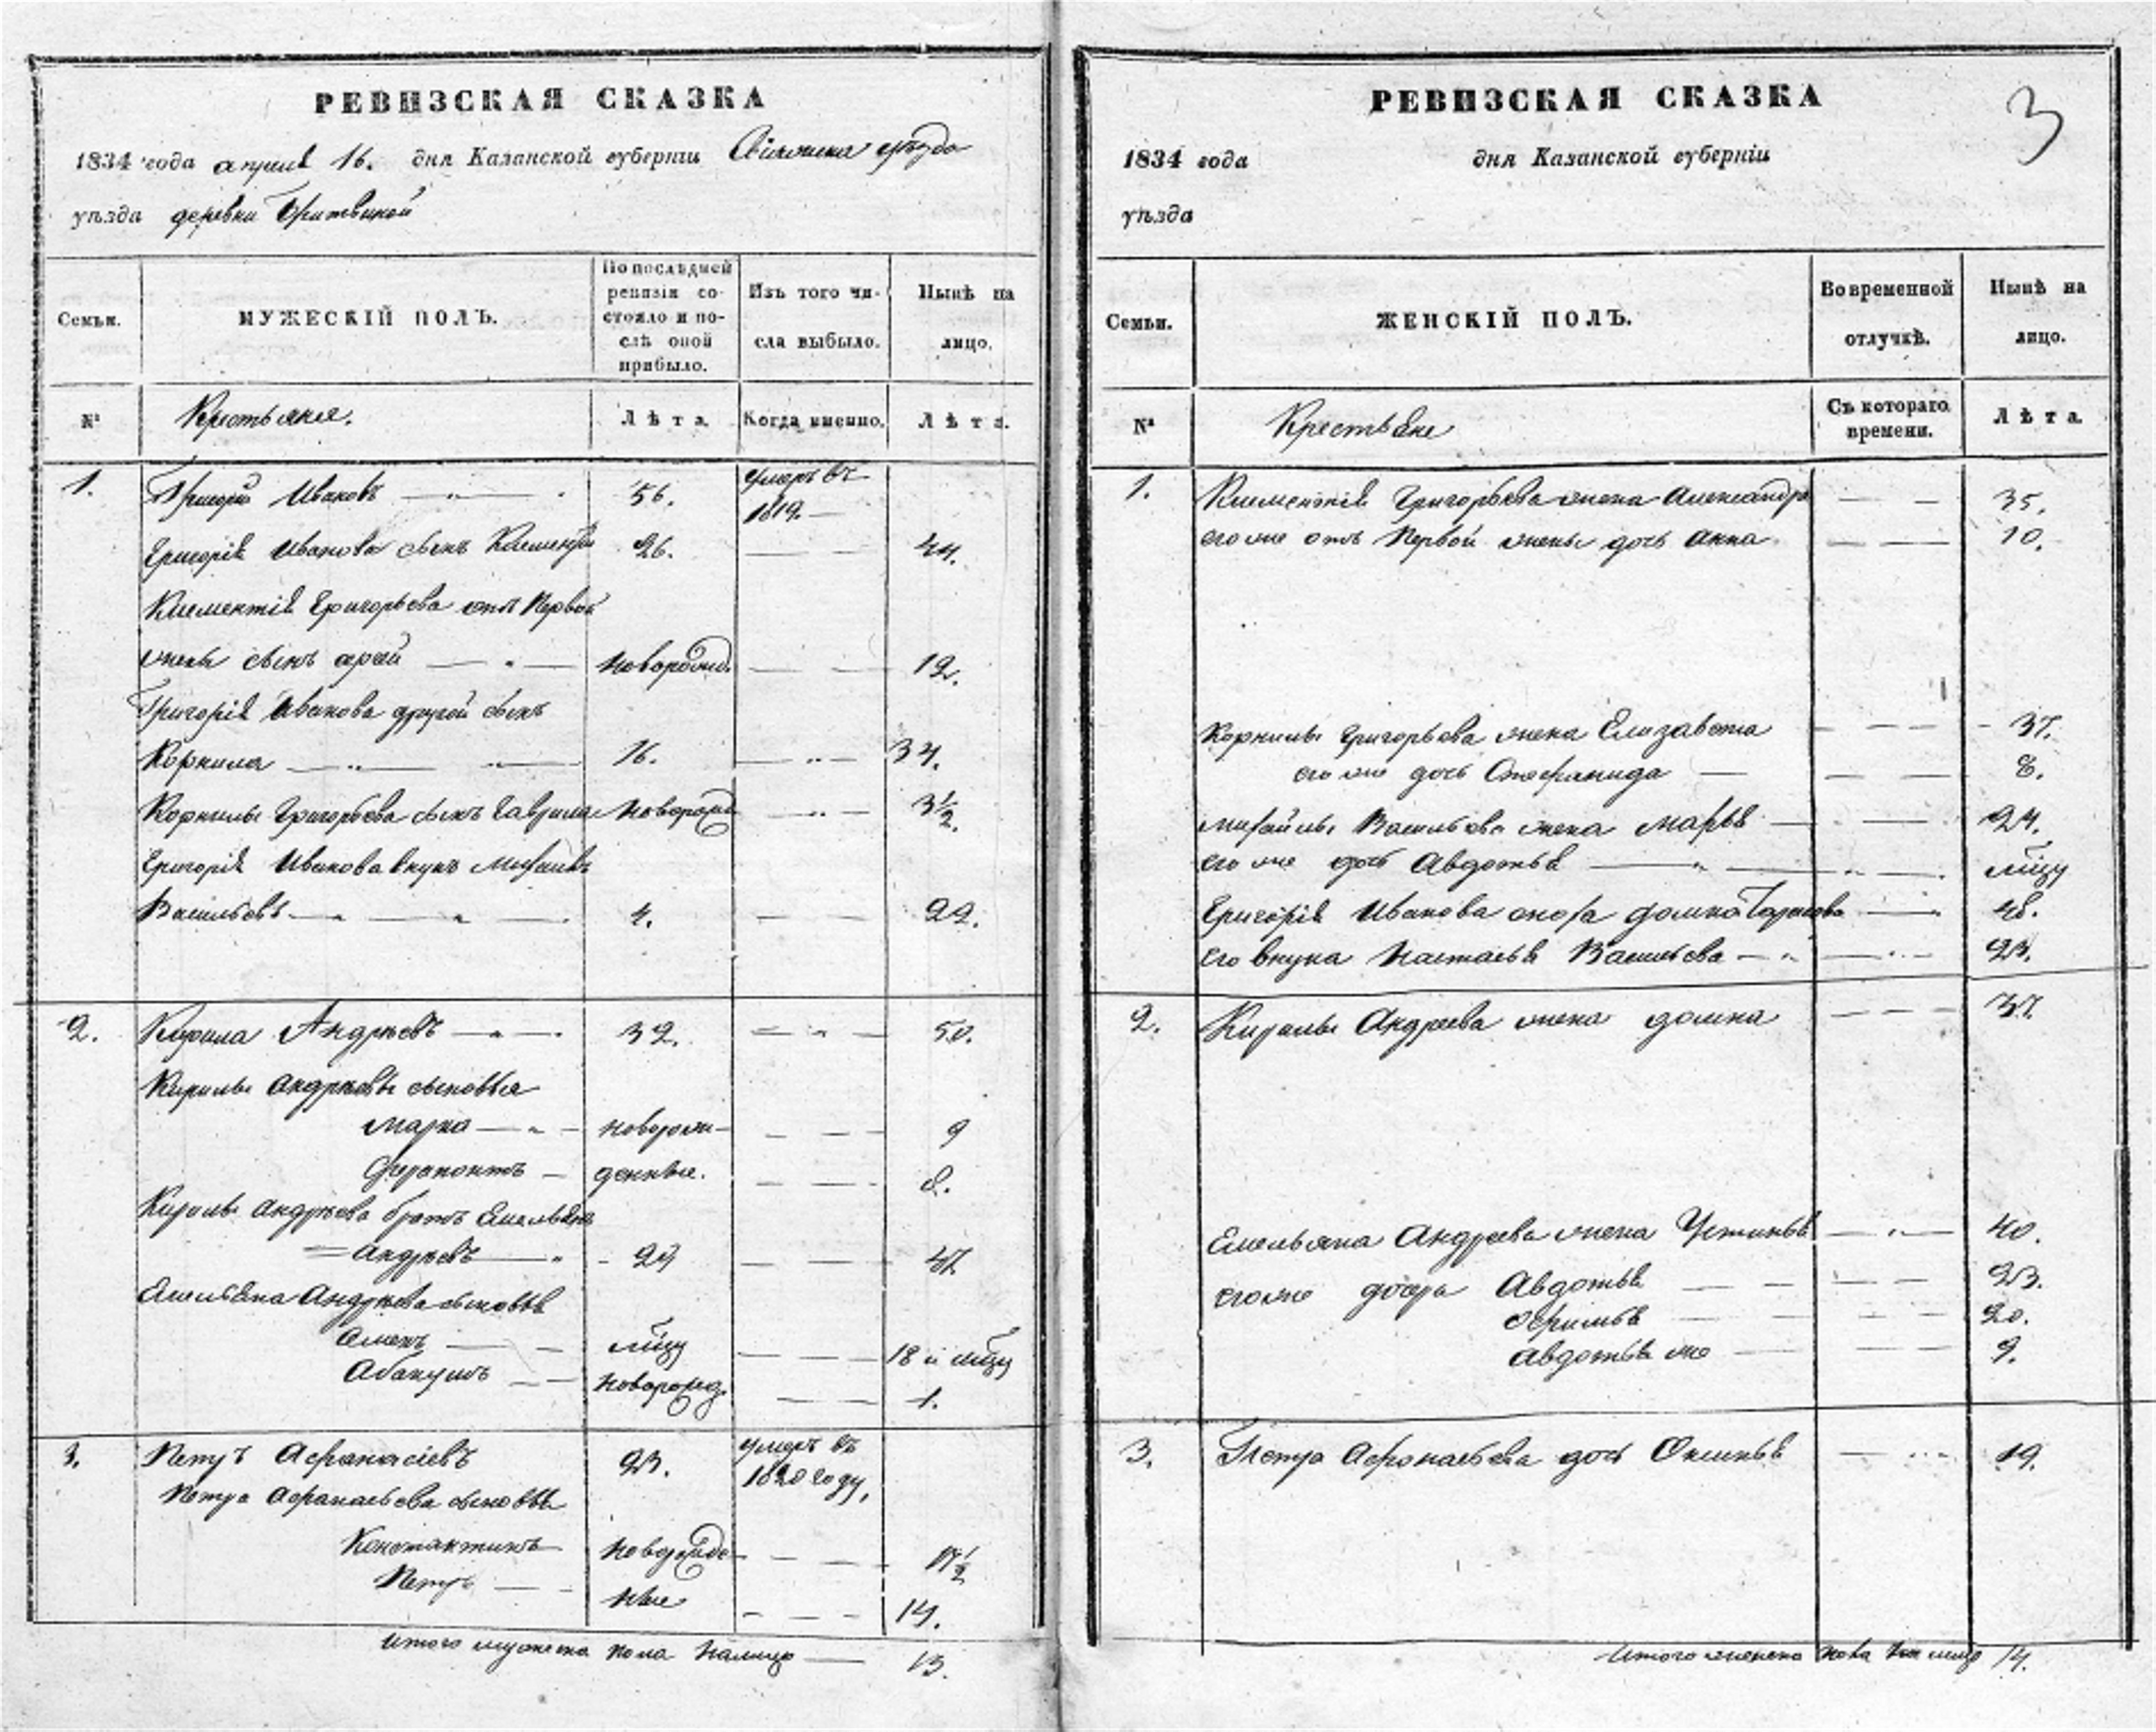 РЕВИЗСКАЯ СКАЗКА
1834 года апреля 16. дня Казанской губерніи уѣзда
уѣзда деревни
Семьи.
МУЖЕСКІЙ ПОЛЪ.
По послѣдней ревизіи состояло и послѣ оной прибыло.
Изъ того числа выбыло.
Нынѣ на лицо.
№
Крестьяня.
Лѣта.
Когда именно.
Лѣта.
1. Григорій Ивановъ 56. умеръ въ 1819.
Григорія Иванова сынъ Климентій 26. 44.
Климентія Григорьева отъ Первой
жены сынъ 12.
Григорія Иванова другой сынъ
Корнила 16. 34.
Корнилы Григорьева сынъ Гаврила 3½.
Григорія Иванова внукъ Михайла
Васильевъ 4. 22.
2. Кирила Андрѣевъ 32. 50.
Кирилы Андрѣева сыновья
Марка новорож- 9
Ферапонтъ денные. 8.
Кирилы Андрѣева братъ Емельянъ
Андрѣевъ 29 47
Емельяна Андрѣева сыновья
18 и
Абакумъ новорожд. 1.
3. Петръ Афанасіевъ 23. умеръ въ 1820 году,
Петра Афанасьева сыновья
Константинъ новорожде- 17½
Петръ ные 14.
Итого мужеска пола налицо 13.
РЕВИЗСКАЯ СКАЗКА
3
1834 года дня Казанской губерніи
уѣзда
Семьи.
ЖЕНСКІЙ ПОЛЪ.
Во временной отлучкѣ.
Нынѣ на лицо.
№
Крестьяне
Съ котораго времени.
Лѣта.
1. Климентія Григорьева жена Александра 35.
его же отъ Первой жены дочь Анна 10.
Корнилы Григорьева жена Елизавета 37.
его же дочь Стефанида 8.
Михайлы Васильева жена Марья 24.
его же дочь Авдотья
Григорія Иванова сноха Домна 48.
его внука Настасья Васильева 23.
2. Кирилы Андреева жена Домна 37.
Емельяна Андреева жена Устинья 40.
его же дочери Авдотья 23.
20.
Авдотья же 9.
3. Петра Афонасьева дочь Оксинья 19.
Итого женска пола на лицо 14.